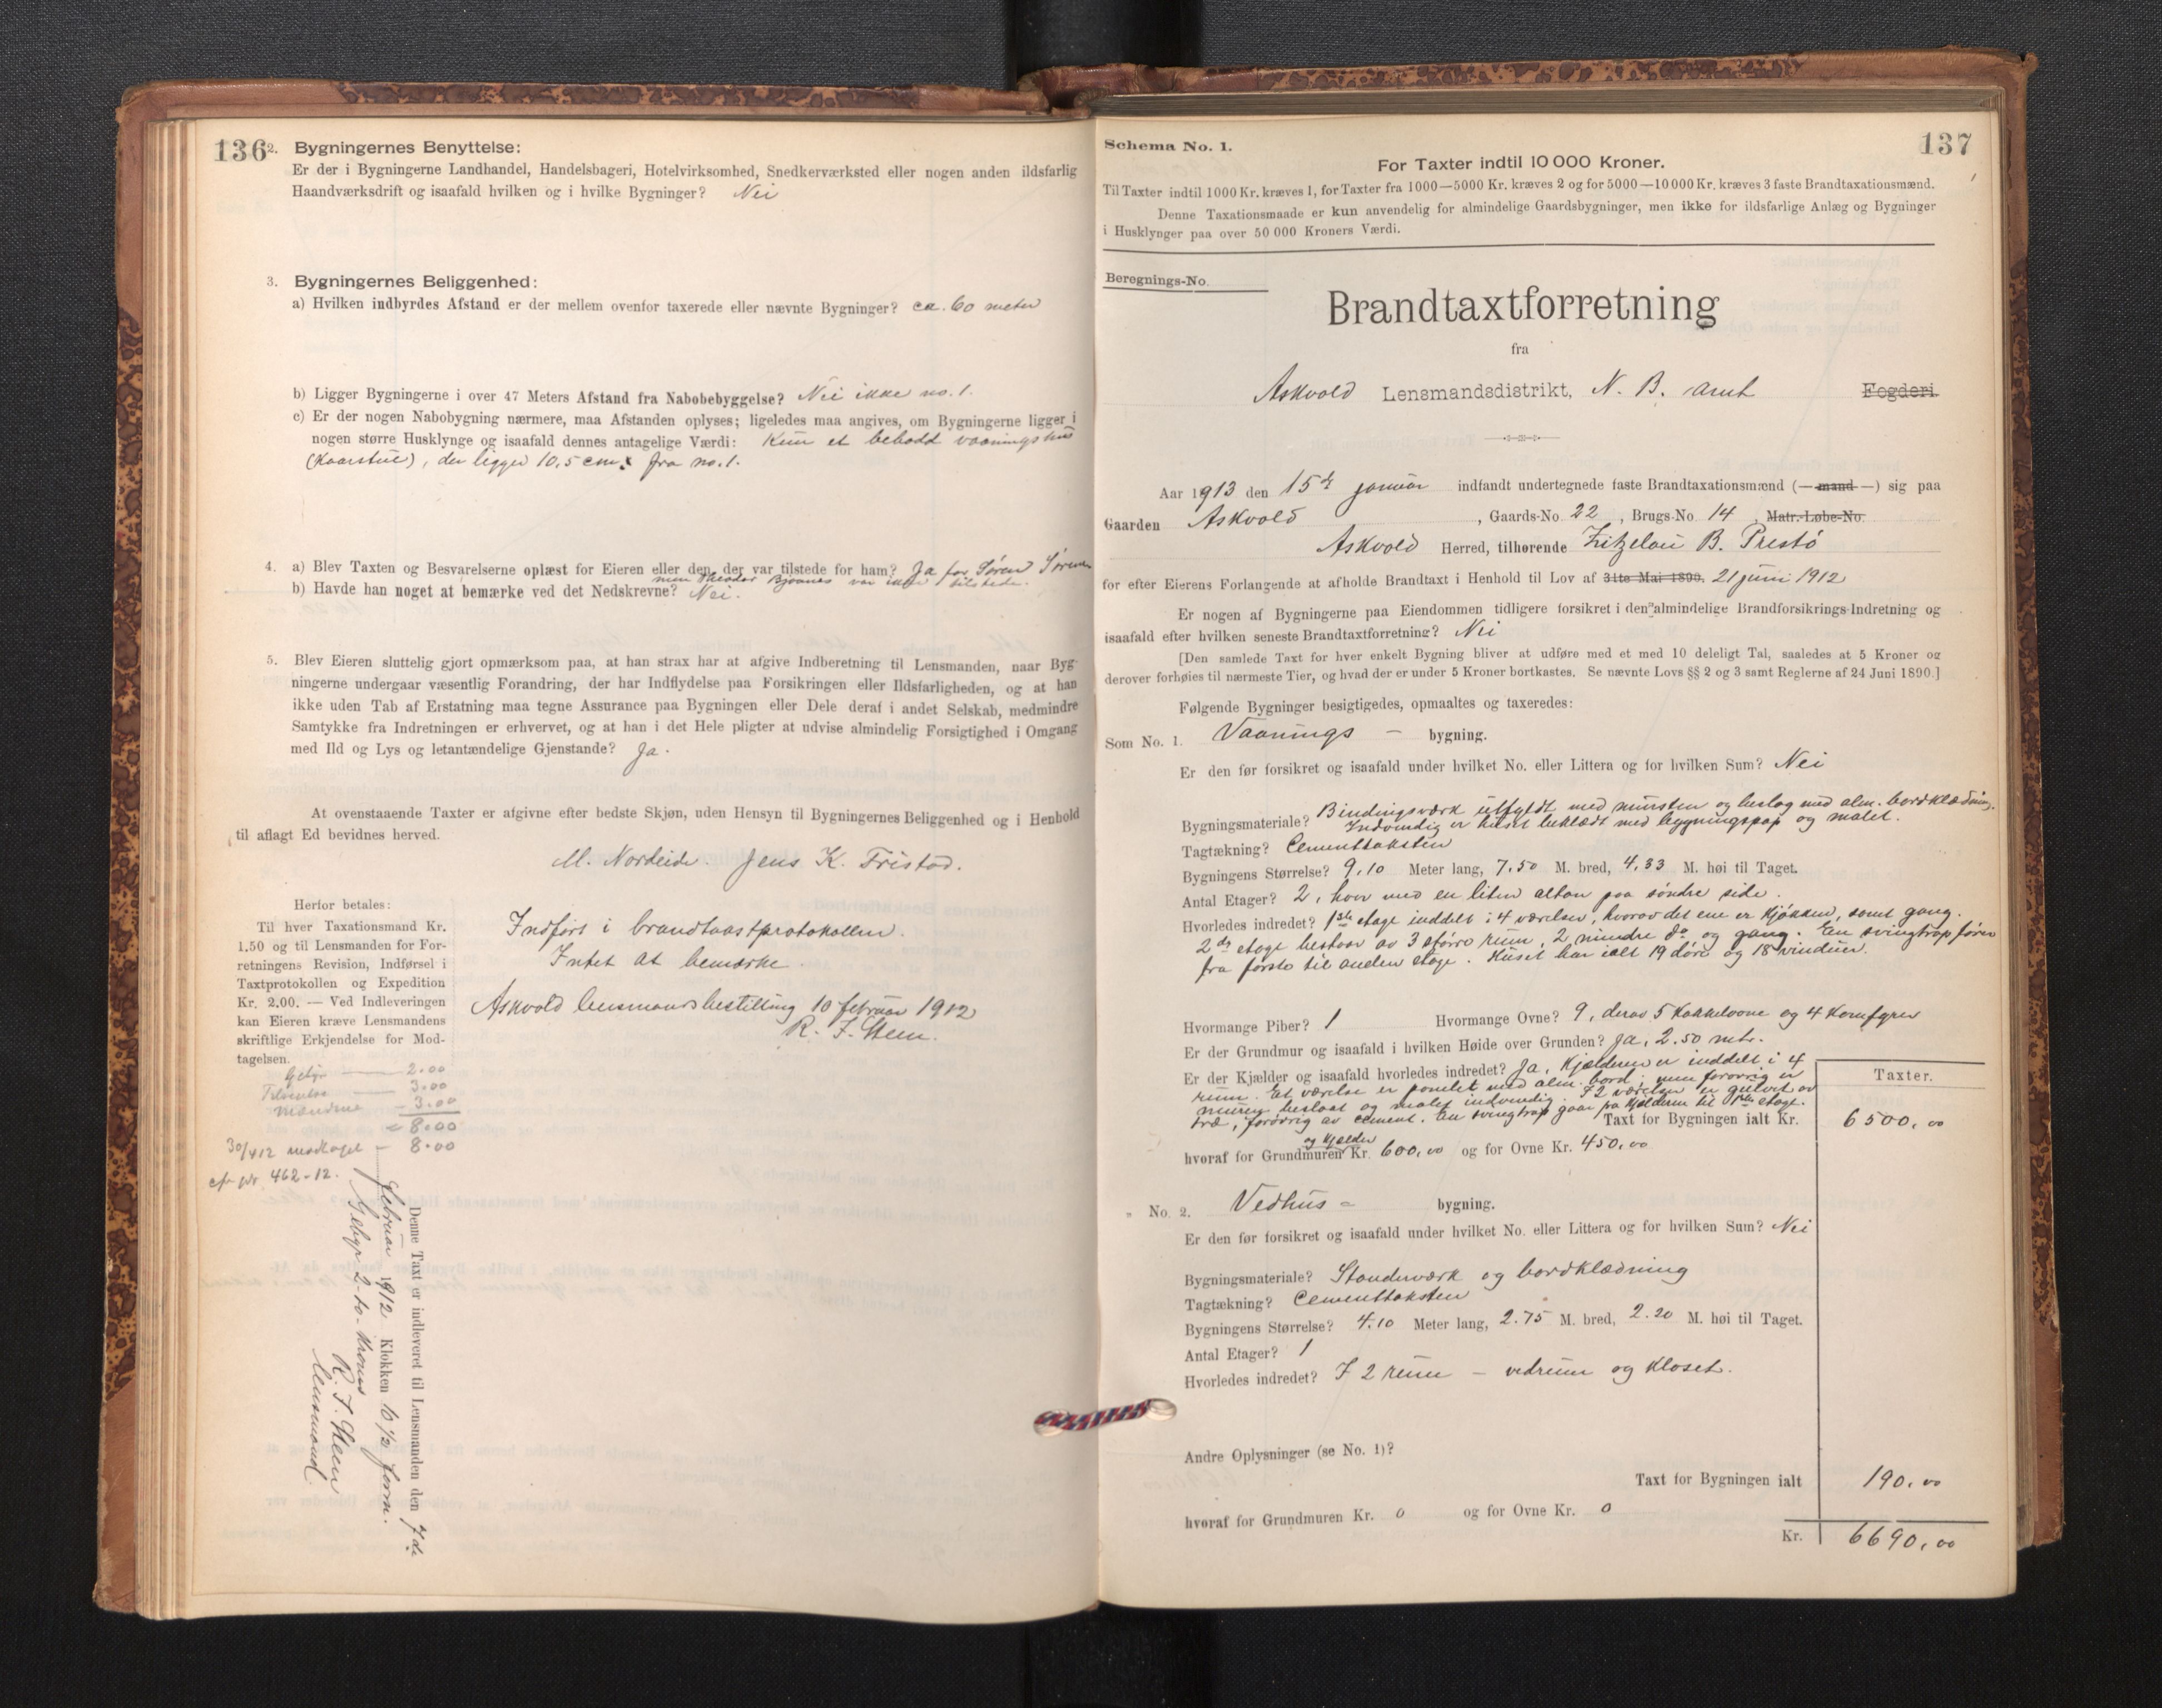 136
2. Bygningernes Benyttelse:
Er der i Bygningerne Landhandel, Handelsbageri, Hotelvirksomhed, Snedkerværksted eller nogen anden ildsfarlig
Haandværksdrift og isaafald hvilken og i hvilke Bygninger? Nei
3. Bygningernes Beliggenhed:
a) Hvilken indbyrdes Afstand er der mellem ovenfor taxerede eller nævnte Bygninger? ca. 60 meter
b) Ligger Bygningerne i over 47 Meters Afstand fra Nabobebyggelse? Nei ikke no. 1.
c) Er der nogen Nabobygning nærmere, maa Afstanden oplyses; ligeledes maa angives, om Bygningerne ligger i
nogen større Husklynge og isaafald dennes antagelige Værdi: Kun et bebodd vaaningshus
(Kaarstue), der ligger 10,5 cm. fra no. 1.
4. a) Blev Taxten og Besvarelserne oplæst for Eieren eller den, der var tilstede for ham? Ja for Søren Sørensen
men Theodor Bjoanes var ikke tilstede.
b) Havde han noget at bemærke ved det Nedskrevne? Nei.
5. Blev Eieren sluttelig gjort opmærksom paa, at han strax har at afgive Indberetning til Lensmanden, naar Byg-
ningerne undergaar væsentlig Forandring, der har Indflydelse paa Forsikringen eller Ildsfarligheden, og at han
ikke uden Tab af Erstatning maa tegne Assurance paa Bygningen eller Dele deraf i andet Selskab, medmindre
Samtykke fra Indretningen er erhvervet, og at han i det Hele pligter at udvise almindelig Forsigtighed i Omgang
med Ild og Lys og letantændelige Gjenstande? Ja.
At ovenstaaende Taxter er afgivne efter bedste Skjøn, uden Hensyn til Bygningernes Beliggenhed og i Henhold
til aflagt Ed bevidnes herved.
M. Nordeide. Jens K. Fristad.
Herfor betales:
Til hver Taxationsmand Kr.
1.50 og til Lensmanden for For-
retningens Revision, Indførsel i
Taxtprotokollen og Expedition
Kr. 2.00. — Ved Indleveringen
kan Eieren kræve Lensmandens
skriftlige Erkjendelse for Mod-
tagelsen.
Indført i brandtaxtprotokollen.
Intet at bemærke.
Askvold lensmandsbestilling 10 februar 1912
R. J. Steen.
Gebyr — 2.00
3.00
Mændene - 3.00
= 8.00
30/4 12 modtaget — 8.00
462-12.
Denne Taxt er indleveret til Lensmanden den 7de
februar 1912 Klokken 10 1/2 form.
Gebyr 2 - to - kroner
R. J. Steen
lensmand.
137
Schema No. 1.
For Taxter indtil 10 000 Kroner.
Til Taxter indtil 1000 Kr. kræves 1, for Taxter fra 1000—5000 Kr. kræves 2 og for 5000—10 000 Kr. kræves 3 faste Brandtaxationsmænd.
Denne Taxationsmaade er kun anvendelig for almindelige Gaardsbygninger, men ikke for ildsfarlige Anlæg og Bygninger
i Husklynger paa over 50 000 Kroners Værdi.
Beregnings-No.
Brandtaxtforretning
fra
Askvold Lensmandsdistrikt, N. B. amt Fogderi.
Aar 1913 den 15de januar indfandt undertegnede faste Brandtaxationsmænd (— mand —) sig paa
Gaarden Askvold, Gaards-No. 22, Brugs-No. 14, Matr.-Løbe-No.
Askvold Herred, tilhørende Fritzelau B. Prestø
for efter Eierens Forlangende at afholde Brandtaxt i Henhold til Lov af 31te Mai 1890. 21 juni 1912
Er nogen af Bygningerne paa Eiendommen tidligere forsikret i den almindelige Brandforsikrings-Indretning og
isaafald efter hvilken seneste Brandtaxtforretning? Nei
[Den samlede Taxt for hver enkelt Bygning bliver at udføre med et med 10 deleligt Tal, saaledes at 5 Kroner og
derover forhøies til nærmeste Tier, og hvad der er under 5 Kroner bortkastes. Se nævnte Lovs §§ 2 og 3 samt Reglerne af 24 Juni 1890.]
Følgende Bygninger besigtigedes, opmaaltes og taxeredes:
Som No. 1. Vaanings - bygning.
Er den før forsikret og isaafald under hvilket No. eller Littera og for hvilken Sum? Nei
Bygningsmateriale? Bindingsværk utfyldt med mursten og beslag med alm. bordklædning.
Indvendig er huset beklædt med bygningspap og malet.
Tagtækning? Cementtaksten
Bygningens Størrelse? 9,10 Meter lang, 7,50 M. bred, 4,33 M. høi til Taget.
Antal Etager? 2, hvor med en liten altan paa søndre side.
Hvorledes indredet? 1ste etage inddelt i 4 værelser, hvorav det ene er kjøkken, samt gang.
2den etage bestaar av 3 større rum, 2 mindre do og gang. En svingtrap fører
fra første til anden etage. Huset har ialt 19 døre og 18 vinduer.
Hvormange Piber? 1 Hvormange Ovne? 9, derav 5 kakkelovne og 4 komfyrer
Er der Grundmur og isaafald i hvilken Høide over Grunden? Ja, 2.50 mtr.
Er der Kjælder og isaafald hvorledes indredet? Ja, Kjælderen er inddelt i 4
rum. Et værelse er panelet med alm. bord, men forøvrig er
muren beslaat og malet indvendig. I 2 værelser er gulvet av
træ, forøvrig av cement. En svingtrap gaar fra kjælderen til 1ste etage.
Taxter.
Taxt for Bygningen ialt Kr. 6500,00
og kjælder
hvoraf for Grundmuren Kr. 600,00 og for Ovne Kr. 450,00
„ No. 2. Vedhus - bygning.
Er den før forsikret og isaafald under hvilket No. eller Littera og for hvilken Sum? Nei
Bygningsmateriale? Standerværk og bordklædning
Tagtækning? Cementtaksten
Bygningens Størrelse? 4.10 Meter lang, 2.75 M. bred, 2.20 M. høi til Taget.
Antal Etager? 1
Hvorledes indredet? I 2 rum - vedrum og kloset.
Andre Oplysninger (se No. 1)?
Taxt for Bygningen ialt 190,00
hvoraf for Grundmuren Kr. 0 og for Ovne Kr. 0
Kr. 6690,00